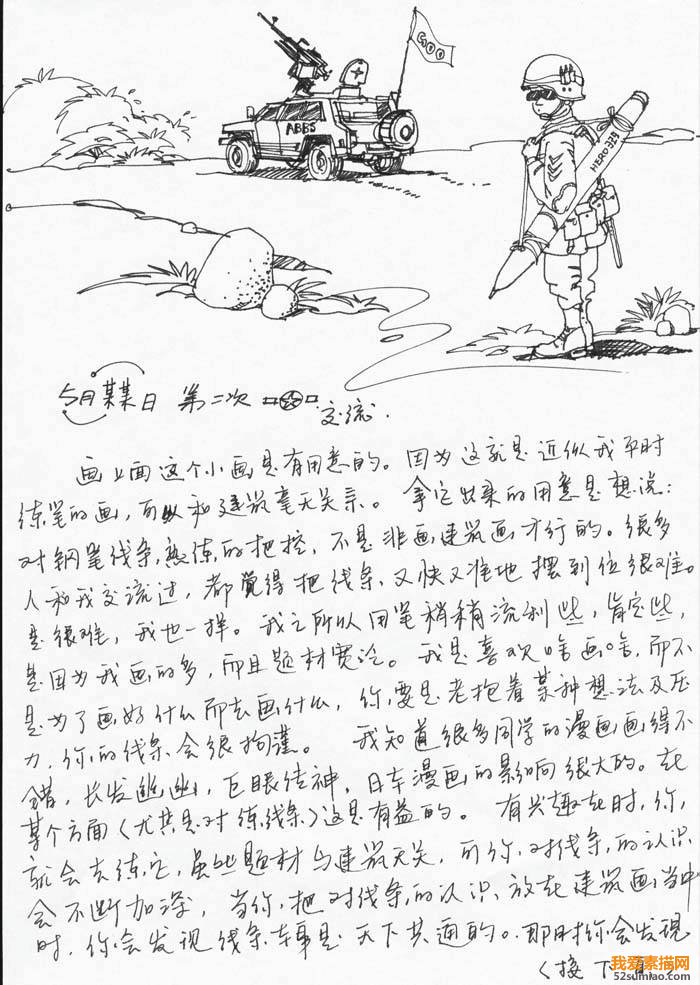 GOO
ABBS
HERO 329
5月某某日 第二次 交流.
画上面这个小画是有用意的。因为这就是近似我平时
练笔的画,而以和建筑毫无关系。拿它出来的用意是想说:
对钢笔线条,熟练的把控,不是非画建筑画才行的。很多
人和我交流过,都觉得把线条又快又准地摆到位很难。
是很难,我也一样。我之所以用笔稍稍流利些,肯定些,
是因为我画的多,而且题材宽泛。我是喜欢啥画啥,而不
是为了画好什么而去画什么,你要是老抱着某种想法及压
力,你的线条会很拘谨。 我知道很多同学的漫画画得不
错,长发幽幽,巨眼传神,日本漫画的影响很大的。在
某个方面(尤其是对练线条)这是有益的。有兴趣在时,你,
就会去练它,虽些题材与建筑无关,可你,对线条,的认识
会不断加深,当你,把对线条,的认识,放在建筑画当中
时,你会发现线条本事是天下共通的。那时你会发现
(接下
我爱素描网
52sumiao.com